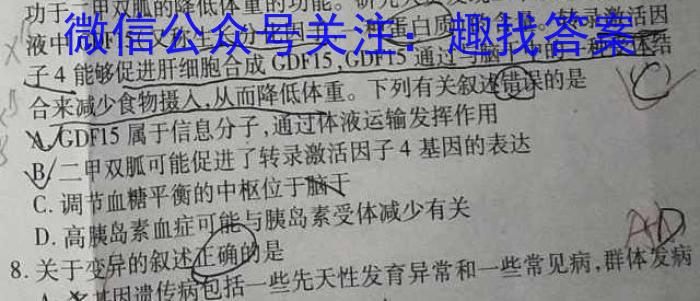 功于二甲双胍的降低体重的功能。研究人员发现
微信公众号关注：趣找答案
液中GDF15 蛋白质 转录激活因
子4能够促进肝细胞合成GDF15,GDF15通过与脑干 结
合来减少食物摄入,从而降低体重。下列有关叙述错误的是
A. GDF15属于信息分子,通过体液运输发挥作用
B. 二甲双胍可能促进了转录激活因子4基因的表达
C. 调节血糖平衡的中枢位于脑干
D. 高胰岛素血症可能与胰岛素受体减少有关
C
AD
8. 关于变异的叙述正确的是
A. 多基因遗传病包括一些先天性发育异常和一些常见病,群体发病